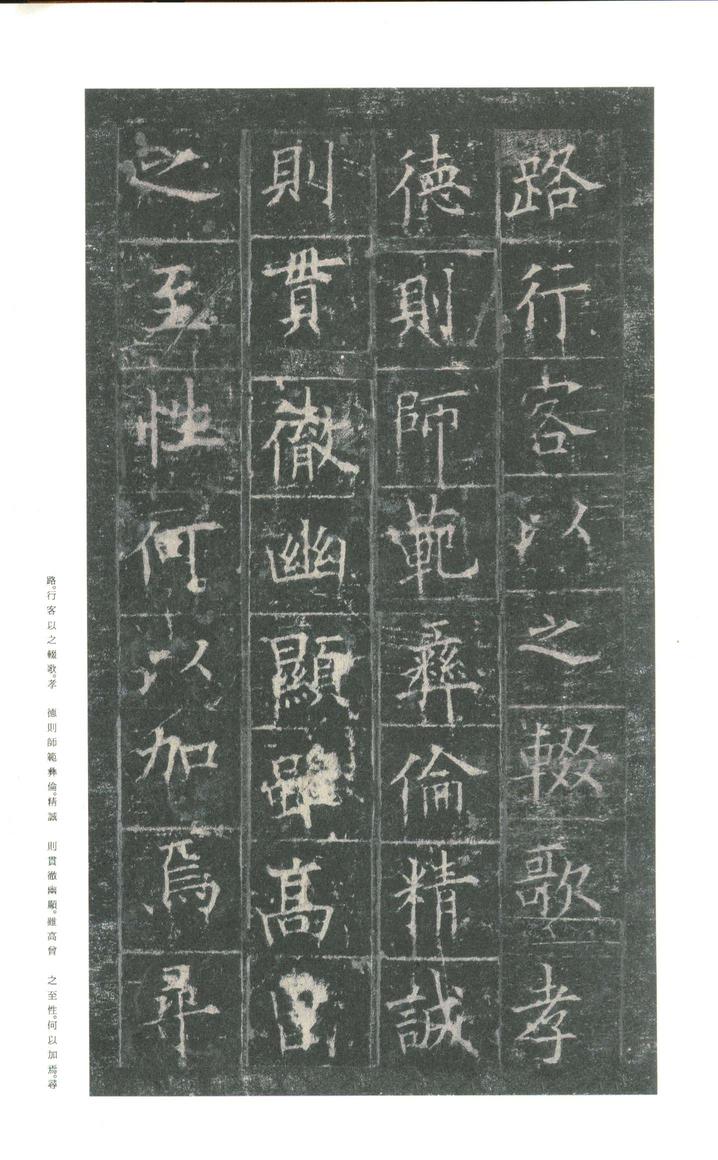 路行客以之輟歌孝
德則師範彝倫精誠
則貫徹幽顯雖高曾
之至性何以加焉尋
路。行客以之輟歌。孝　德則師範彝倫。精誠　則貫徹幽顯。雖高曾　之至性。何以加焉。尋